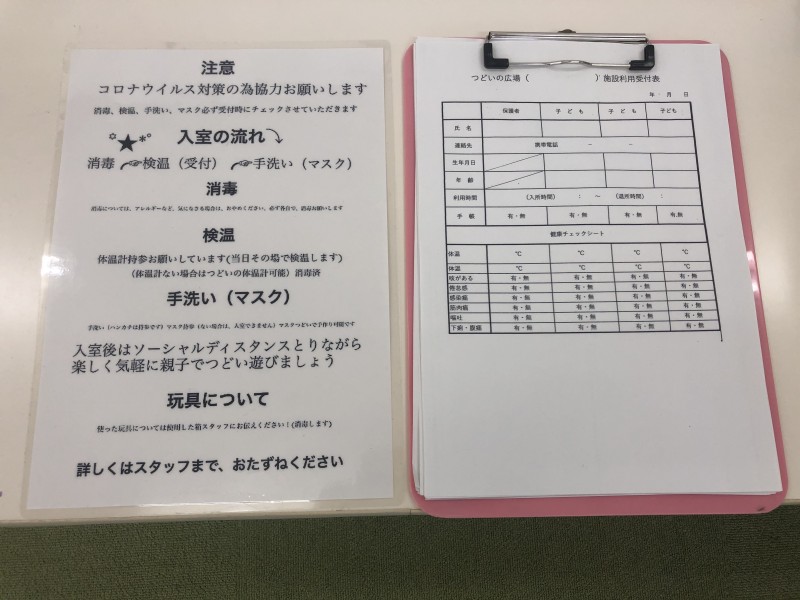 注意
コロナウイルス対策の為協力お願いします
消毒、検温、手洗い、マスク必ず受付時にチェックさせていただきます
入室の流れ
消毒 検温（受付） 手洗い（マスク）
消毒
消毒については、アレルギーなど、気になさる場合は、おやめください。必ず各自で、消毒お願いします
検温
体温計持参お願いしています(当日その場で検温します)
（体温計ない場合はつどいの体温計可能）消毒済
手洗い（マスク）
手洗い（ハンカチは持参です）マスク持参（ない場合は、入室できません）マスクつどいで手作り可能です
入室後はソーシャルディスタンスとりながら
楽しく気軽に親子でつどい遊びましょう
玩具について
使った玩具については使用した箱スタッフにお伝えください！(消毒します)
詳しくはスタッフまで、おたずねください
つどいの広場（ ）施設利用受付表
年 月 日
保護者 子ども 子ども 子ども
氏 名
連絡先 携帯電話 － －
生年月日
年 齢
利用時間 （入所時間） ： ～ （退所時間） ：
手 帳 有・無 有・無 有・無 有.無
健康チェックシート
体温 ℃ ℃ ℃ ℃
体温 ℃ ℃ ℃ ℃
咳がある 有・無 有・無 有・無 有・無
倦怠感 有・無 有・無 有・無 有・無
感染痛 有・無 有・無 有・無 有・無
筋肉痛 有・無 有・無 有・無 有・無
嘔吐 有・無 有・無 有・無 有・無
下痢・腹痛 有・無 有・無 有・無 有・無